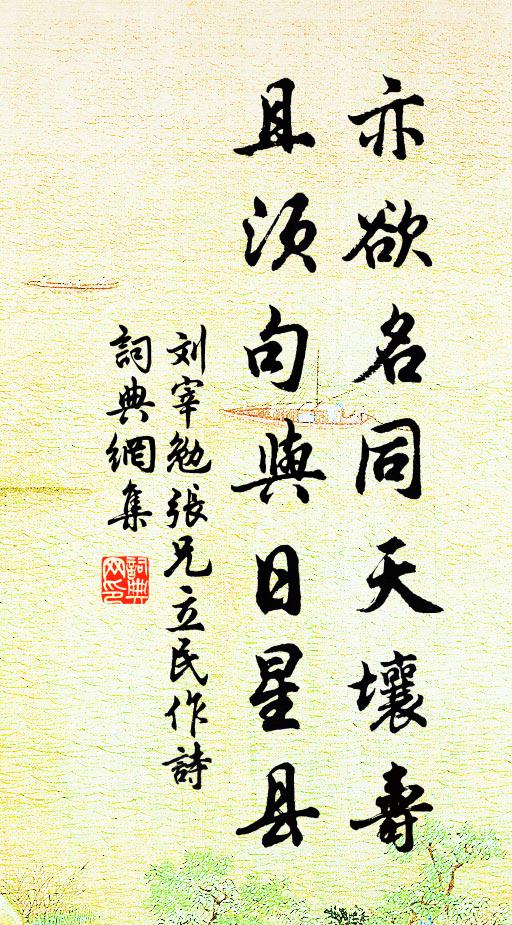 亦欲名同天壤壽
且须句與日星县
刘宰勉張兄立民作詩
詞典網集
詞典
网印